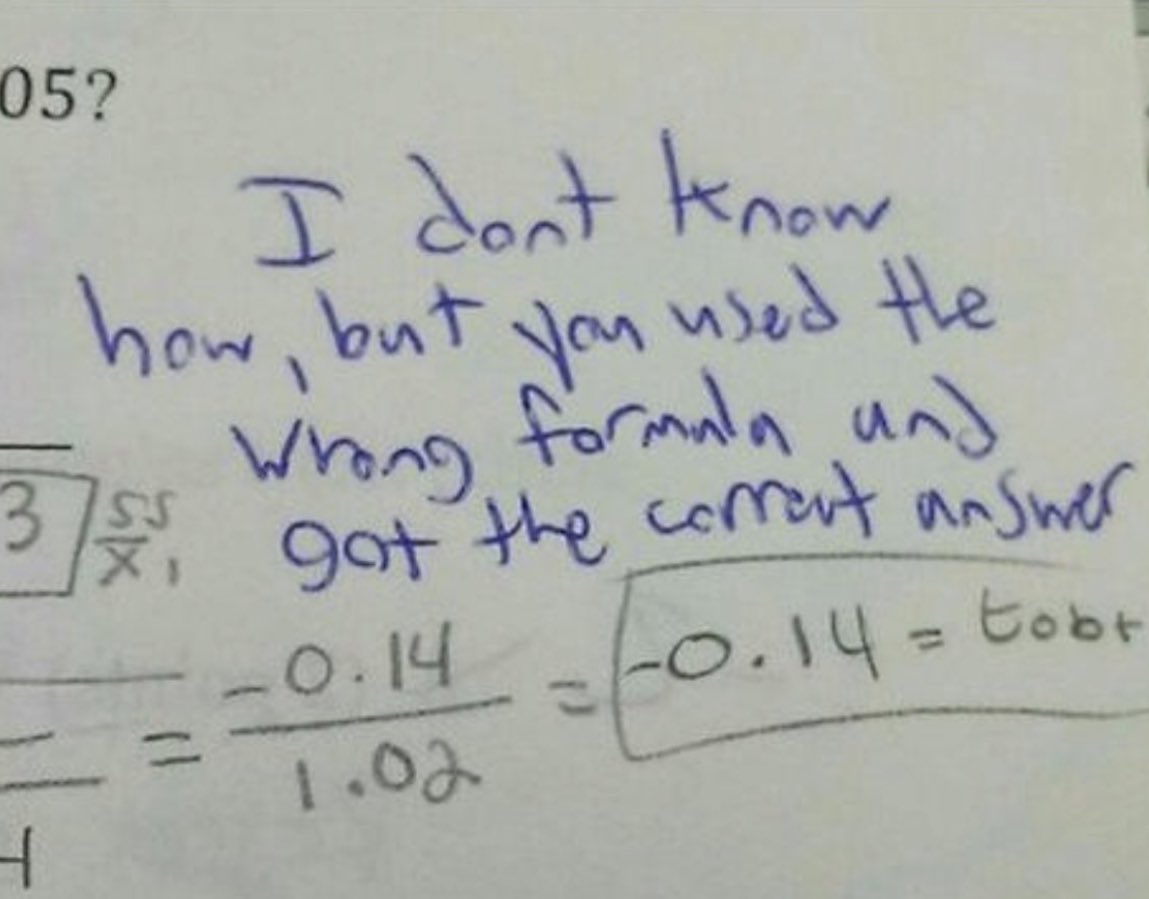 05?
I dont know
how, but you used the
wrong formula and
got the correct answer
3 SS
X₁
= -0.14 / 1.02 = -0.14 = tobt